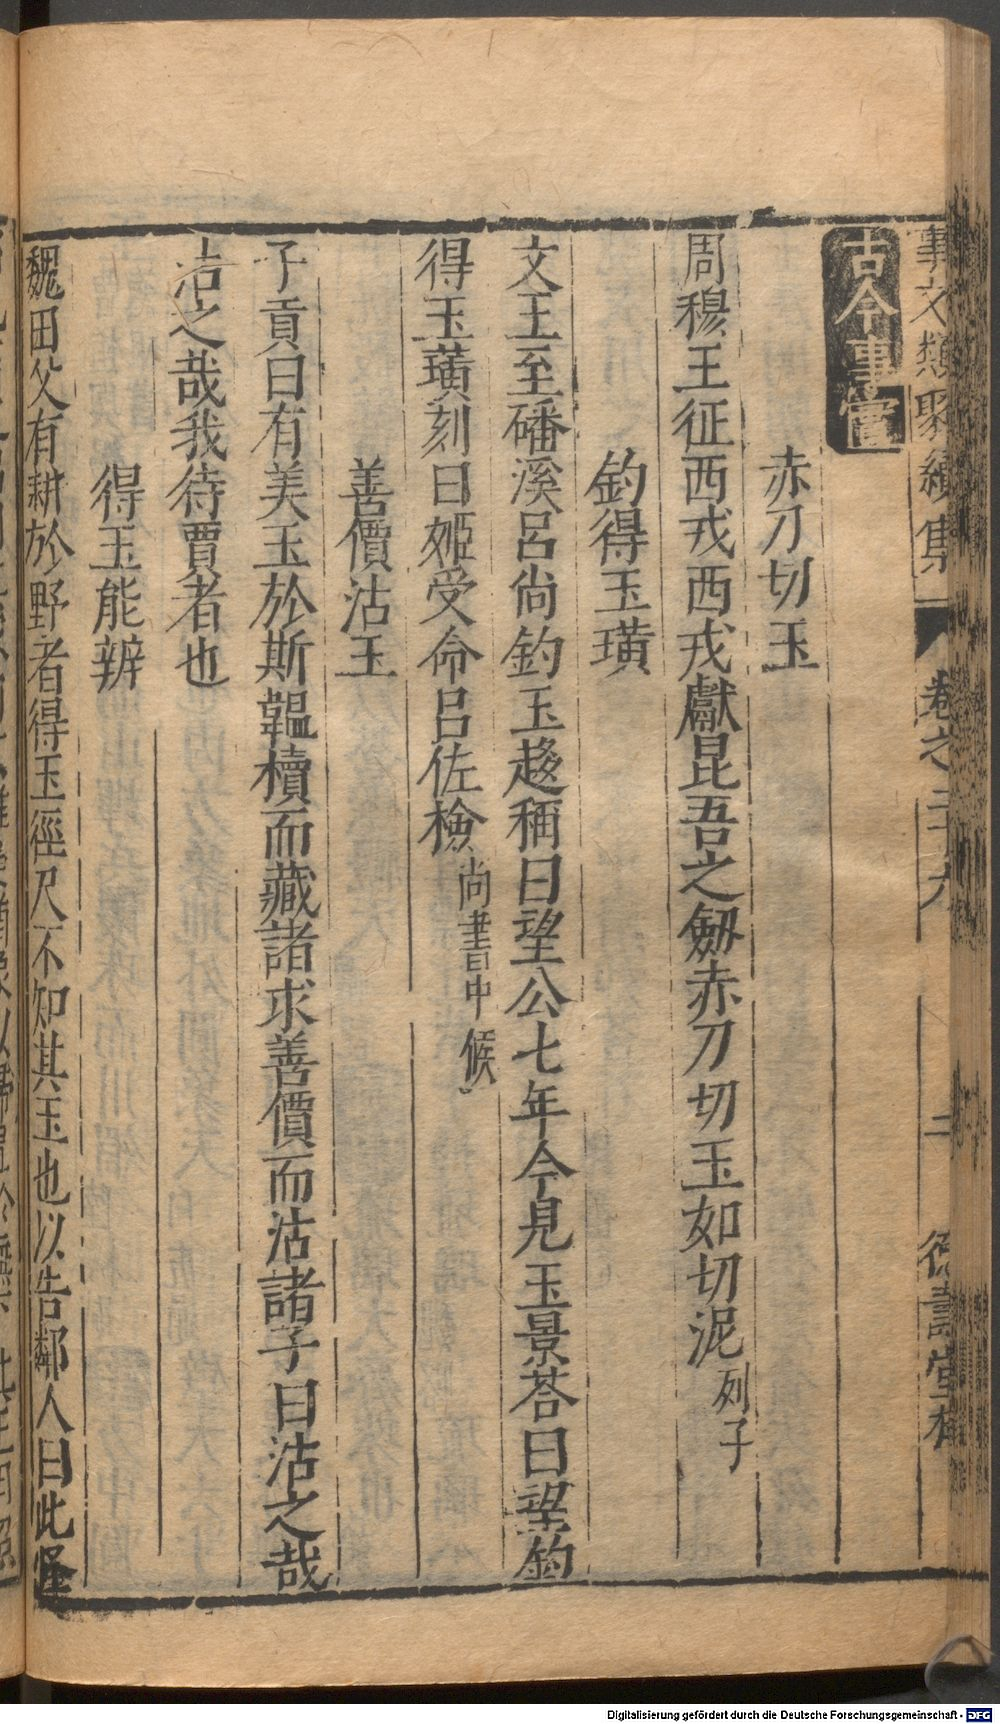 事文類聚續集 卷之二十六 二 德壽堂梓
古今事實
赤刀切玉
周穆王征西戎西戎獻昆吾之劔赤刀切玉如切泥列子
釣得玉璜
文王至磻溪呂尚釣王趍稱曰望公七年今見玉景荅曰望釣
得玉璜刻曰姬受命呂佐檢尚書中候
善價沽玉
子貢曰有美玉於斯韞櫝而藏諸求善價而沽諸子曰沽之哉
沽之哉我待賈者也
得玉能辨
魏田父有耕於野者得玉徑尺不知其玉也以告鄰人曰此怪
Digitalisierung gefördert durch die Deutsche Forschungsgemeinschaft - DFG